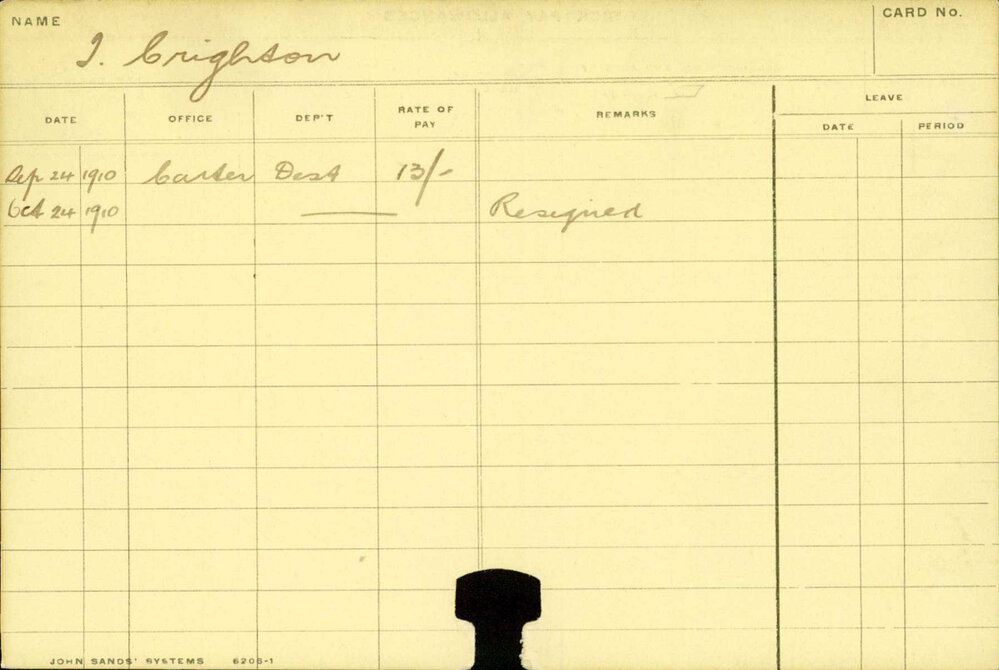 NAME
CARD No.
J. Crighton
DATE OFFICE DEP'T RATE OF PAY REMARKS LEAVE
DATE PERIOD
Sep 24 1910 Carter Dest 13/-
Oct 24 1910 Resigned
JOHN SANDS' SYSTEMS 6206-1